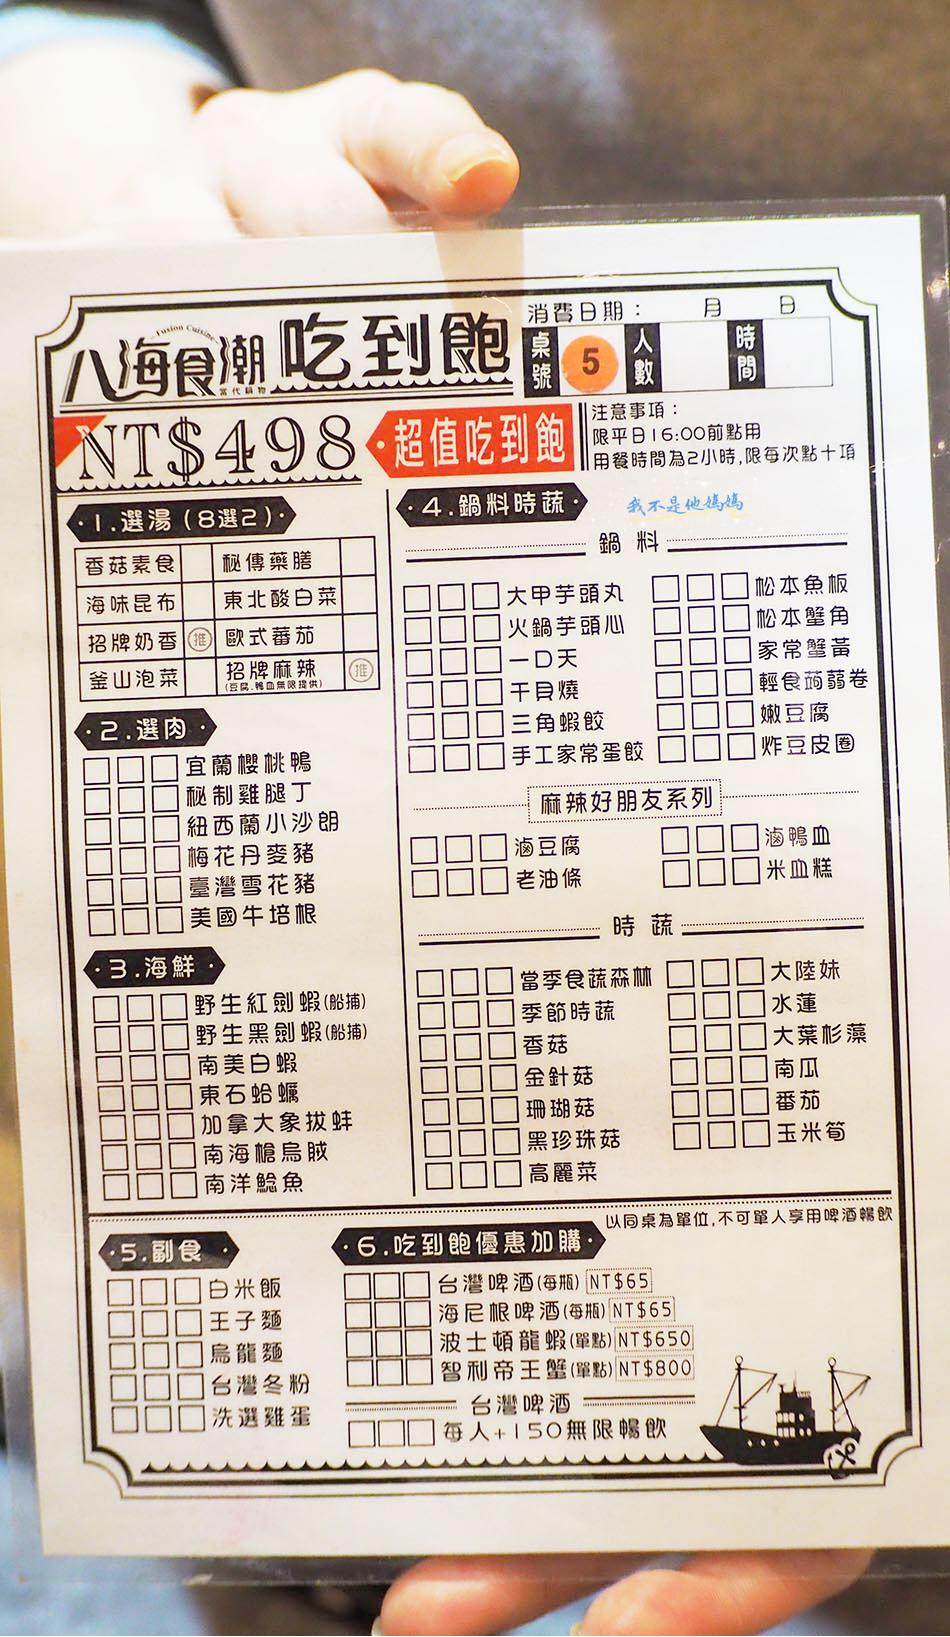 Fusion Cuisine
八海食潮 吃到飽
當代鍋物
消費日期： 月 日
桌號 5 人數 時間
NT$498
超值吃到飽
注意事項：
限平日16:00前點用
用餐時間為2小時,限每次點十項
·1.選湯(8選2)·
香菇素食 秘傳藥膳
海味昆布 東北酸白菜
招牌奶香 推 歐式蕃茄
釜山泡菜 招牌麻辣 推
(豆腐.鴨血無限提供)
·2.選肉·
宜蘭櫻桃鴨
秘制雞腿丁
紐西蘭小沙朗
梅花丹麥豬
臺灣雪花豬
美國牛培根
·3.海鮮·
野生紅劍蝦(船捕)
野生黑劍蝦(船捕)
南美白蝦
東石蛤蠣
加拿大象拔蚌
南海槍烏賊
南洋鯰魚
·4.鍋料時蔬·
我不是他媽媽
鍋料
大甲芋頭丸 松本魚板
火鍋芋頭心 松本蟹角
一口天 家常蟹黃
干貝燒 輕食蒟蒻卷
三角蝦餃 嫩豆腐
手工家常蛋餃 炸豆皮圈
麻辣好朋友系列
滷豆腐 滷鴨血
老油條 米血糕
時蔬
當季食蔬森林 大陸妹
季節時蔬 水蓮
香菇 大葉杉藻
金針菇 南瓜
珊瑚菇 番茄
黑珍珠菇 玉米筍
高麗菜
以同桌為單位,不可單人享用啤酒暢飲
·5.副食·
白米飯
王子麵
烏龍麵
台灣冬粉
洗選雞蛋
·6.吃到飽優惠加購·
台灣啤酒(每瓶) NT$65
海尼根啤酒(每瓶) NT$65
波士頓龍蝦(單點) NT$650
智利帝王蟹(單點) NT$800
台灣啤酒
每人+150無限暢飲